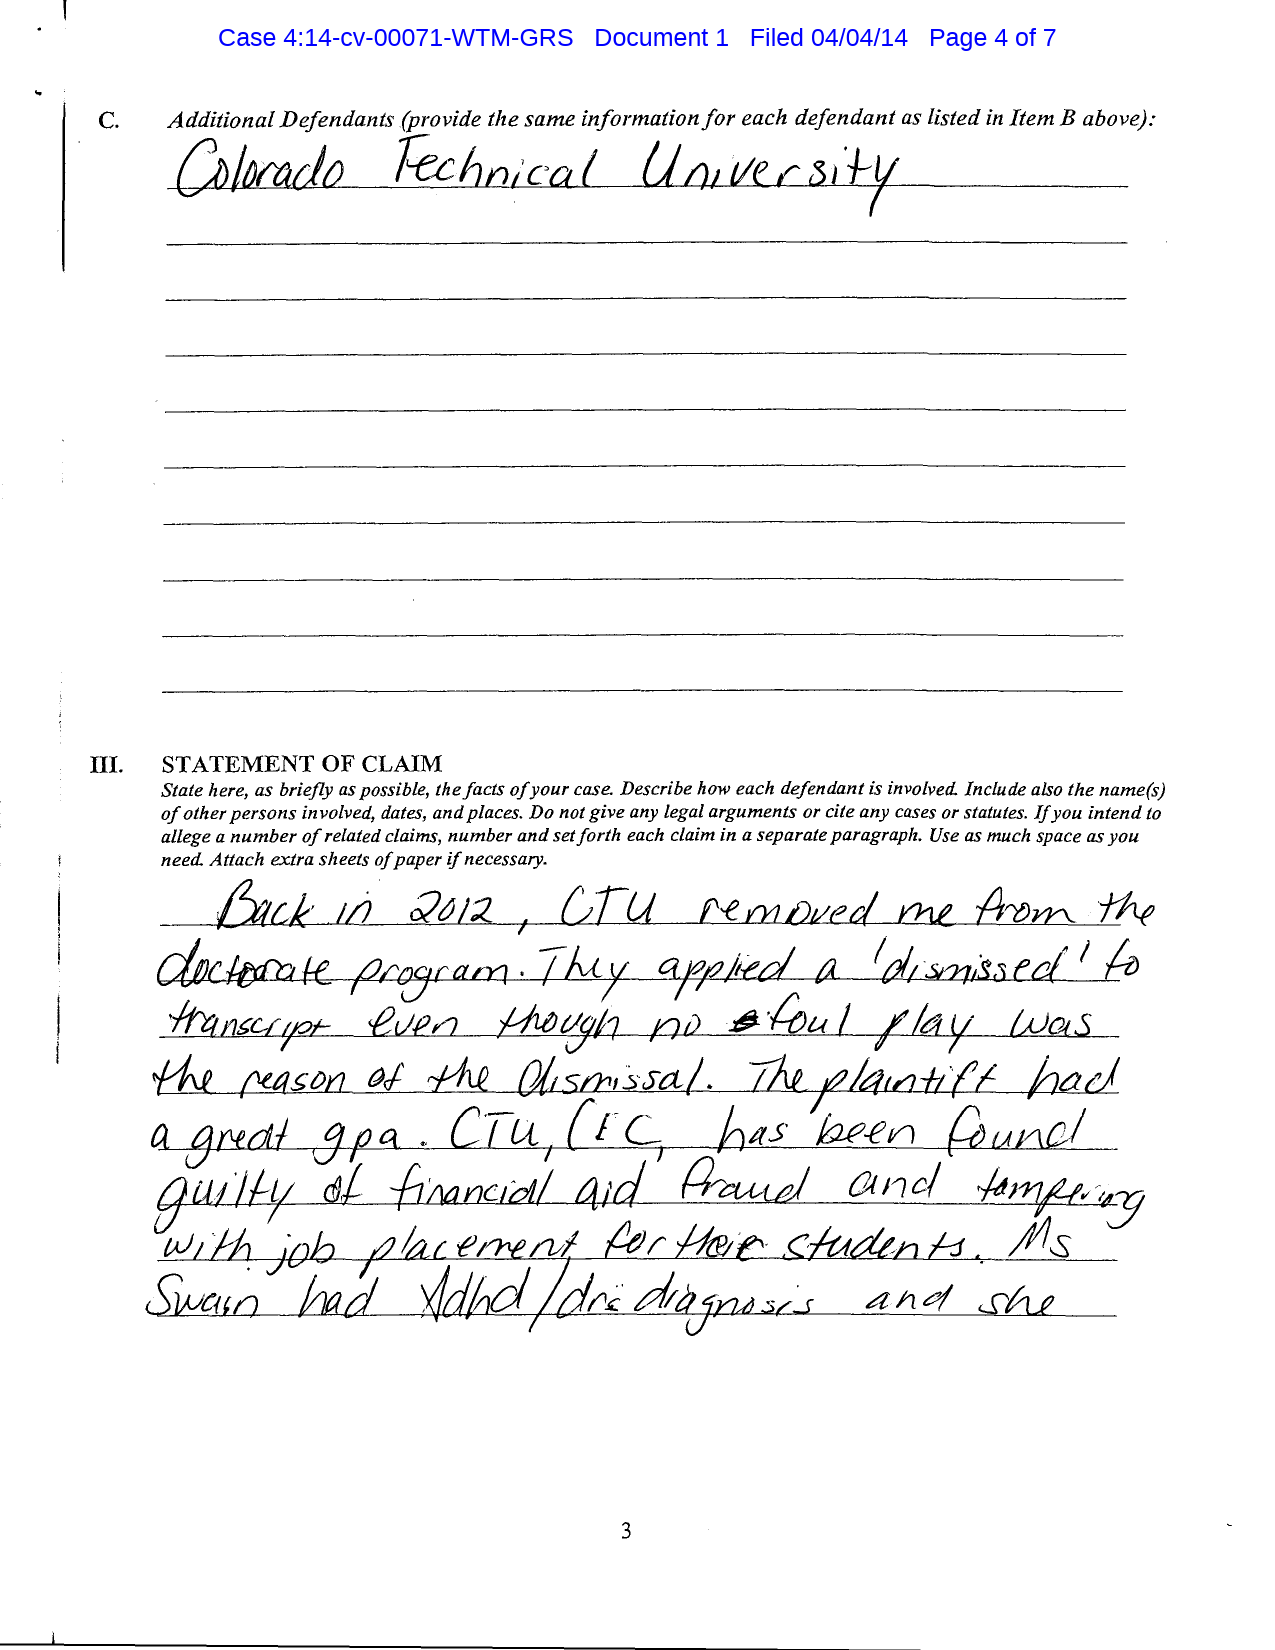 Case 4:14-cv-00071-WTM-GRS Document 1 Filed 04/04/14 Page 4 of 7
C. Additional Defendants (provide the same information for each defendant as listed in Item B above):
Colorado Technical University
III. STATEMENT OF CLAIM
State here, as briefly as possible, the facts of your case. Describe how each defendant is involved. Include also the name(s)
of other persons involved, dates, and places. Do not give any legal arguments or cite any cases or statutes. If you intend to
allege a number of related claims, number and set forth each claim in a separate paragraph. Use as much space as you
need. Attach extra sheets of paper if necessary.
Back in 2012, CTU removed me from the
doctorate program. They applied a 'dismissed' to
transcript even though no foul play was
the reason of the dismissal. The plaintiff had
a great gpa. CTU, CEC, has been found
guilty of financial aid fraud and tampering
with job placement for their students. Ms
Swain had Adhd/ diagnosis and she
3